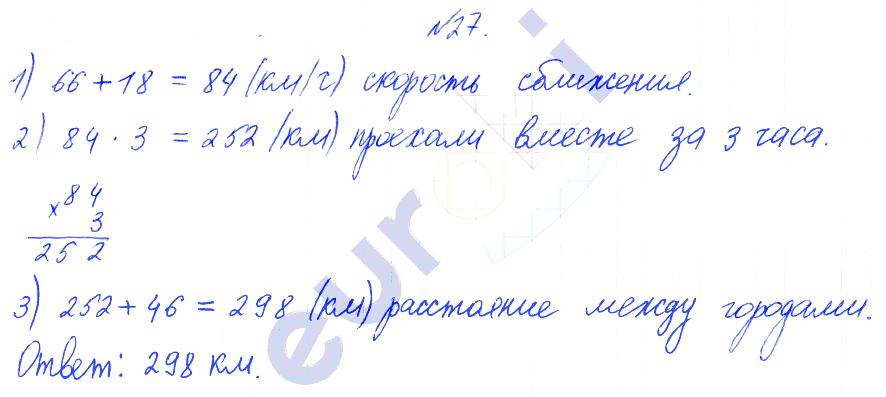 №27.
1) 66 + 18 = 84 (км/ч) скорость сближения.
2) 84 · 3 = 252 (км) проехали вместе за 3 часа.
× 84
3
252
3) 252 + 46 = 298 (км) расстояние между городами.
Ответ: 298 км.
euroki